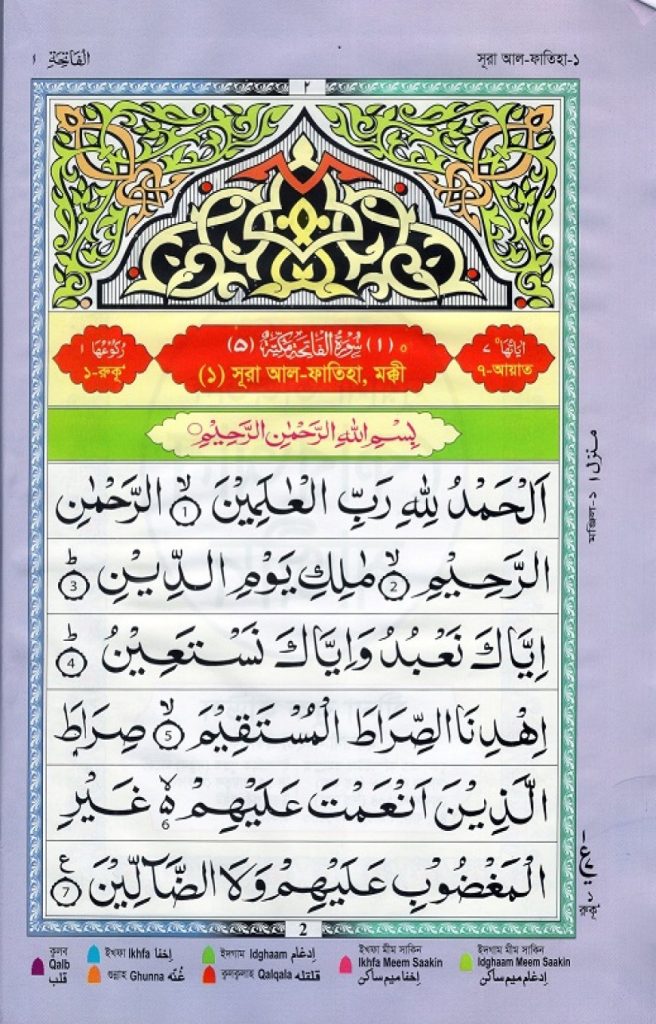 الفَاتِحَة ١
সূরা আল-ফাতিহা-১
٢
رُكُوْعُهَا ١
১-রুকূ'
(١) سُوْرَةُ الْفَاتِحَةِ مَكِّيَّةٌ (٥)
(১) সূরা আল-ফাতিহা, মক্কী
اٰيَاتُهَا ٧
৭-আয়াত
بِسْمِ اللهِ الرَّحْمٰنِ الرَّحِيْمِ
اَلْحَمْدُ لِلّٰهِ رَبِّ الْعٰلَمِيْنَ ۙ 1 الرَّحْمٰنِ
الرَّحِيْمِ ۙ 2 مٰلِكِ يَوْمِ الدِّيْنِ ؕ 3
اِيَّاكَ نَعْبُدُ وَاِيَّاكَ نَسْتَعِيْنُ ؕ 4
اِهْدِنَا الصِّرَاطَ الْمُسْتَقِيْمَ ۙ 5 صِرَاطَ
الَّذِيْنَ اَنْعَمْتَ عَلَيْهِمْ ۙ ۵ 6 غَيْرِ
الْمَغْضُوْبِ عَلَيْهِمْ وَلَا الضَّآلِّيْنَ ع 7
منزل ١
মঞ্জিল-১
ع
১
রুকূ'
2
কুলব
Qalb
قلب
ইখফা Ikhfa إخفا
গুন্নাহ Ghunna غُنَّه
ইদগাম Idghaam إدغام
কুলকুলাহ Qalqala قلقله
ইখফা মীম সাকিন
Ikhfa Meem Saakin
إخفا ميم ساكن
ইদগাম মীম সাকিন
Idghaam Meem Saakin
إدغام ميم ساكن